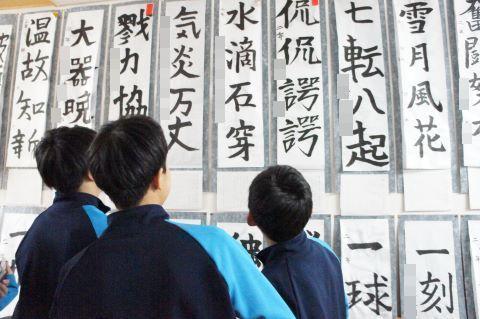 奮闘努
雪月風花
七転八起
侃侃諤諤
水滴石穿
気炎万丈
戮力協
大器晩
温故知新
一刻
一球